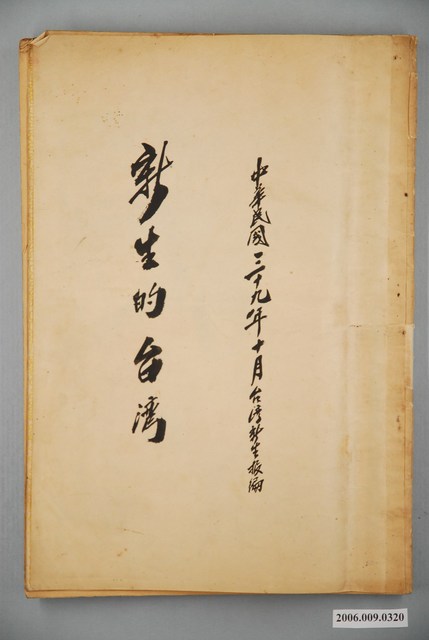 中華民國三十九年十月台灣新生報編
新生的台灣
2006.009.0320